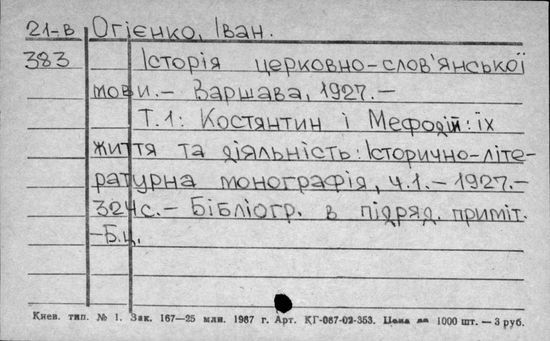 21-в Огієнко, Іван.
383 Історія церковно-слов'янської
мови.- Варшава, 1927.-
Т.1: Костянтин і Мефодій: їх
життя та діяльність: Історично-літе-
ратурна монографія, ч.1.- 1927.-
324с.- Бібліогр. в підряд. приміт.
-Б.ц.
Киев. тип. № 1. Зак. 167—25 млн. 1987 г. Арт. КГ-087-02-353. Цена за 1000 шт. — 3 руб.